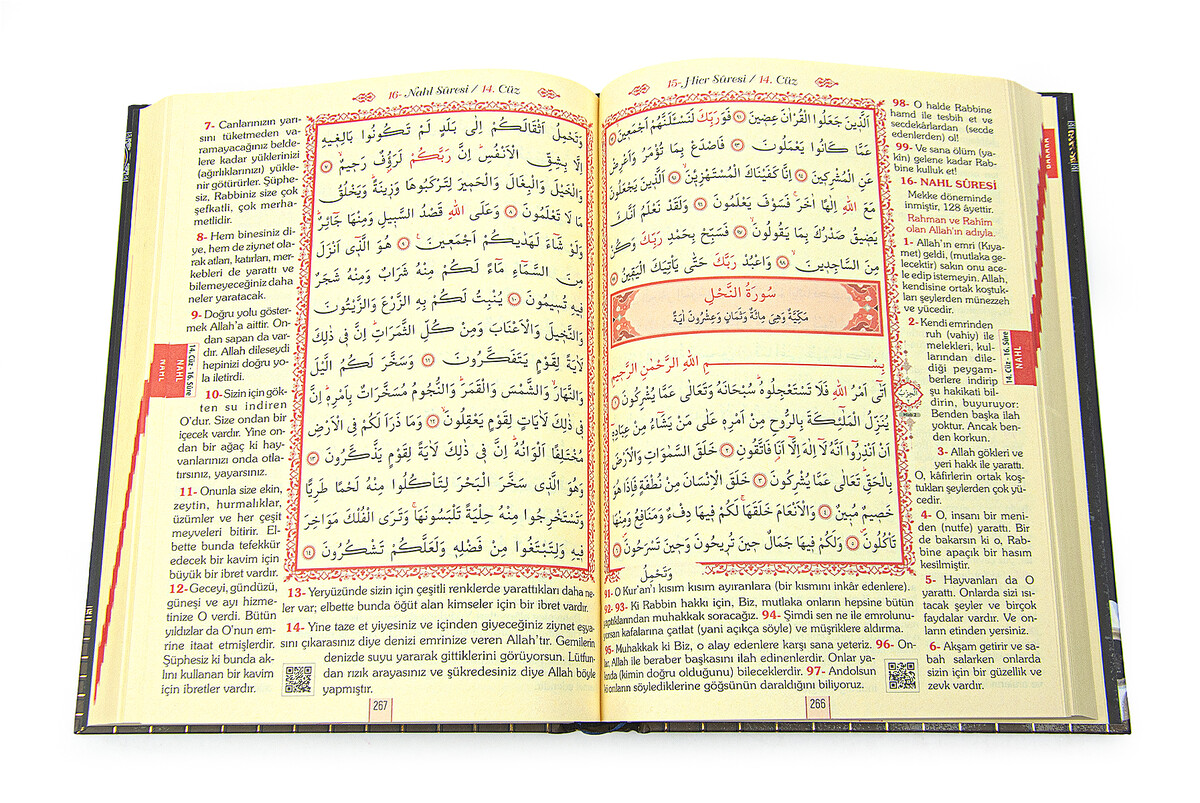 15- Hicr Sûresi / 14. Cüz
اَلَّذ۪ينَ جَعَلُوا الْقُرْاٰنَ عِض۪ينَ ﴿٩١﴾ فَوَرَبِّكَ لَنَسْـَٔلَنَّهُمْ اَجْمَع۪ينَۙ ﴿٩٢﴾
عَمَّا كَانُوا يَعْمَلُونَ ﴿٩٣﴾ فَاصْدَعْ بِمَا تُؤْمَرُ وَاَعْرِضْ
عَنِ الْمُشْرِك۪ينَ ﴿٩٤﴾ اِنَّا كَفَيْنَاكَ الْمُسْتَهْزِء۪ينَۙ ﴿٩٥﴾ اَلَّذ۪ينَ يَجْعَلُونَ
مَعَ اللّٰهِ اِلٰهًا اٰخَرَۚ فَسَوْفَ يَعْلَمُونَ ﴿٩٦﴾ وَلَقَدْ نَعْلَمُ اَنَّكَ
يَض۪يقُ صَدْرُكَ بِمَا يَقُولُونَۙ ﴿٩٧﴾ فَسَبِّحْ بِحَمْدِ رَبِّكَ وَكُنْ
مِنَ السَّاجِد۪ينَۙ ﴿٩٨﴾ وَاعْبُدْ رَبَّكَ حَتّٰى يَأْتِيَكَ الْيَق۪ينُ ﴿٩٩﴾
سُورَةُ النَّحْلِ
مَكِّيَّةٌ وَهِىَ مِائَةٌ وَثَمَانٍ وَعِشْرُونَ اٰيَةً
بِسْمِ اللّٰهِ الرَّحْمٰنِ الرَّح۪يمِ
اَتٰٓى اَمْرُ اللّٰهِ فَلَا تَسْتَعْجِلُوهُۜ سُبْحَانَهُ وَتَعَالٰى عَمَّا يُشْرِكُونَ ﴿١﴾
يُنَزِّلُ الْمَلٰٓئِكَةَ بِالرُّوحِ مِنْ اَمْرِه۪ عَلٰى مَنْ يَشَٓاءُ مِنْ عِبَادِه۪ٓ
اَنْ اَنْذِرُٓوا اَنَّهُ لَٓا اِلٰهَ اِلَّٓا اَنَا۬ فَاتَّقُونِ ﴿٢﴾ خَلَقَ السَّمٰوَاتِ وَالْاَرْضَ
بِالْحَقِّۜ تَعَالٰى عَمَّا يُشْرِكُونَ ﴿٣﴾ خَلَقَ الْاِنْسَانَ مِنْ نُطْفَةٍ فَاِذَا هُوَ
خَص۪يمٌ مُب۪ينٌ ﴿٤﴾ وَالْاَنْعَامَ خَلَقَهَاۚ لَكُمْ ف۪يهَا دِفْءٌ وَمَنَافِعُ وَمِنْهَا
تَأْكُلُونَۖ ﴿٥﴾ وَلَكُمْ ف۪يهَا جَمَالٌ ح۪ينَ تُر۪يحُونَ وَح۪ينَ تَسْرَحُونَۖ ﴿٦﴾
وَتَحْمِلُ
91- O Kur'an'ı kısım kısım ayıranlara (bir kısmını inkâr edenlere).
92- 93- Ki Rabbin hakkı için, Biz, mutlaka onların hepsine bütün
yaptıklarından muhakkak soracağız. 94- Şimdi sen ne ile emrolunu-
yorsan kafalarına çatlat (yani açıkça söyle) ve müşriklere aldırma.
95- Muhakkak ki Biz, o alay edenlere karşı sana yeteriz. 96- On-
lar, Allah ile beraber başkasını ilah edinenlerdir. Onlar ya-
kında (kimin doğru olduğunu) bileceklerdir. 97- Andolsun
ki onların söylediklerine göğsünün daraldığını biliyoruz.
98- O halde Rabbine
hamd ile tesbih et ve
secdekârlardan (secde
edenlerden) ol!
99- Ve sana ölüm (ya-
kin) gelene kadar Rab-
bine kulluk et!
16- NAHL SÛRESİ
Mekke döneminde
inmiştir, 128 âyettir.
Rahman ve Rahîm
olan Allah'ın adıyla.
1- Allah'ın emri (Kıya-
met) geldi, (mutlaka ge-
lecektir) sakın onu ace-
le edip istemeyin. Allah,
kendisine ortak koştuk-
ları şeylerden münezzeh
ve yücedir.
2- Kendi emrinden
ruh (vahiy) ile
melekleri, kul-
larından dile-
diği peygam-
berlere indirip
şu hakikati bil-
dirin, buyuruyor:
Benden başka ilah
yoktur. Ancak ben-
den korkun.
3- Allah gökleri ve
yeri hakk ile yarattı.
O, kâfirlerin ortak koş-
tukları şeylerden çok yü-
cedir.
4- O, insanı bir meni-
den (nutfe) yarattı. Bir
de bakarsın ki o, Rab-
bine apaçık bir hasım
kesilmiştir.
5- Hayvanları da O
yarattı. Onlarda sizi ısı-
tacak şeyler ve birçok
faydalar vardır. Ve on-
ların etinden yersiniz.
6- Akşam getirir ve sa-
bah salarken onlarda
sizin için bir güzellik ve
zevk vardır.
اَلْحِزْبُ
14. Cüz - 16. Sûre
NAHL
266
16- Nahl Sûresi / 14. Cüz
وَتَحْمِلُ اَثْقَالَكُمْ اِلٰى بَلَدٍ لَمْ تَكُونُوا بَالِغ۪يهِ
اِلَّا بِشِقِّ الْاَنْفُسِۜ اِنَّ رَبَّكُمْ لَرَؤُ۫فٌ رَح۪يمٌۙ ﴿٧﴾
وَالْخَيْلَ وَالْبِغَالَ وَالْحَم۪يرَ لِتَرْكَبُوهَا وَز۪ينَةًۜ وَيَخْلُقُ
مَا لَا تَعْلَمُونَ ﴿٨﴾ وَعَلَى اللّٰهِ قَصْدُ السَّب۪يلِ وَمِنْهَا جَٓائِرٌۜ
وَلَوْ شَٓاءَ لَهَدٰيكُمْ اَجْمَع۪ينَ۟ ﴿٩﴾ هُوَ الَّذ۪ٓي اَنْزَلَ
مِنَ السَّمَٓاءِ مَٓاءً لَكُمْ مِنْهُ شَرَابٌ وَمِنْهُ شَجَرٌ
ف۪يهِ تُس۪يمُونَ ﴿١٠﴾ يُنْبِتُ لَكُمْ بِهِ الزَّرْعَ وَالزَّيْتُونَ
وَالنَّخ۪يلَ وَالْاَعْنَابَ وَمِنْ كُلِّ الثَّمَرَاتِۜ اِنَّ ف۪ي ذٰلِكَ
لَاٰيَةً لِقَوْمٍ يَتَفَكَّرُونَ ﴿١١﴾ وَسَخَّرَ لَكُمُ الَّيْلَ
وَالنَّهَارَۙ وَالشَّمْسَ وَالْقَمَرَۜ وَالنُّجُومُ مُسَخَّرَاتٌ بِاَمْرِه۪ۜ اِنَّ
ف۪ي ذٰلِكَ لَاٰيَاتٍ لِقَوْمٍ يَعْقِلُونَۙ ﴿١٢﴾ وَمَا ذَرَاَ لَكُمْ فِي الْاَرْضِ
مُخْتَلِفًا اَلْوَانُهُۜ اِنَّ ف۪ي ذٰلِكَ لَاٰيَةً لِقَوْمٍ يَذَّكَّرُونَ ﴿١٣﴾
وَهُوَ الَّذ۪ي سَخَّرَ الْبَحْرَ لِتَأْكُلُوا مِنْهُ لَحْمًا طَرِيًّا
وَتَسْتَخْرِجُوا مِنْهُ حِلْيَةً تَلْبَسُونَهَاۚ وَتَرَى الْفُلْكَ مَوَاخِرَ
ف۪يهِ وَلِتَبْتَغُوا مِنْ فَضْلِه۪ وَلَعَلَّكُمْ تَشْكُرُونَ ﴿١٤﴾
7- Canlarınızın yarı-
sını tüketmeden va-
ramayacağınız belde-
lere kadar yüklerinizi
(ağırlıklarınızı) yükle-
nir götürürler. Şüphe-
siz. Rabbiniz size çok
şefkatli, çok merha-
metlidir.
8- Hem binesiniz di-
ye, hem de ziynet ola-
rak atları, katırları, mer-
kebleri de yarattı ve
bilemeyeceğiniz daha
neler yaratacak.
9- Doğru yolu göster-
mek Allah'a aittir. On-
dan sapan da var-
dır. Allah dileseydi
hepinizi doğru yo-
la iletirdi.
10- Sizin için gök-
ten su indiren
O'dur. Size ondan bir
içecek vardır. Yine on-
dan bir ağaç ki hay-
vanlarınızı onda otla-
tırsınız, yayarsınız.
11- Onunla size ekin,
zeytin, hurmalıklar,
üzümler ve her çeşit
meyveleri bitirir. El-
bette bunda tefekkür
edecek bir kavim için
büyük bir ibret vardır.
12- Geceyi, gündüzü,
güneşi ve ayı hizme-
tinize O verdi. Bütün
yıldızlar da O'nun em-
rine itaat etmişlerdir.
Şüphesiz ki bunda ak-
lını kullanan bir kavim
için ibretler vardır.
13- Yeryüzünde sizin için çeşitli renklerde yarattıkları daha ne-
ler var; elbette bunda öğüt alan kimseler için bir ibret vardır.
14- Yine taze et yiyesiniz ve içinden giyeceğiniz ziynet eşya-
sını çıkarasınız diye denizi emrinize veren Allah'tır. Gemilerin
denizde suyu yararak gittiklerini görüyorsun. Lütfun-
dan rızık arayasınız ve şükredesiniz diye Allah böyle
yapmıştır.
14. Cüz - 16. Sûre
NAHL
NAHL
267